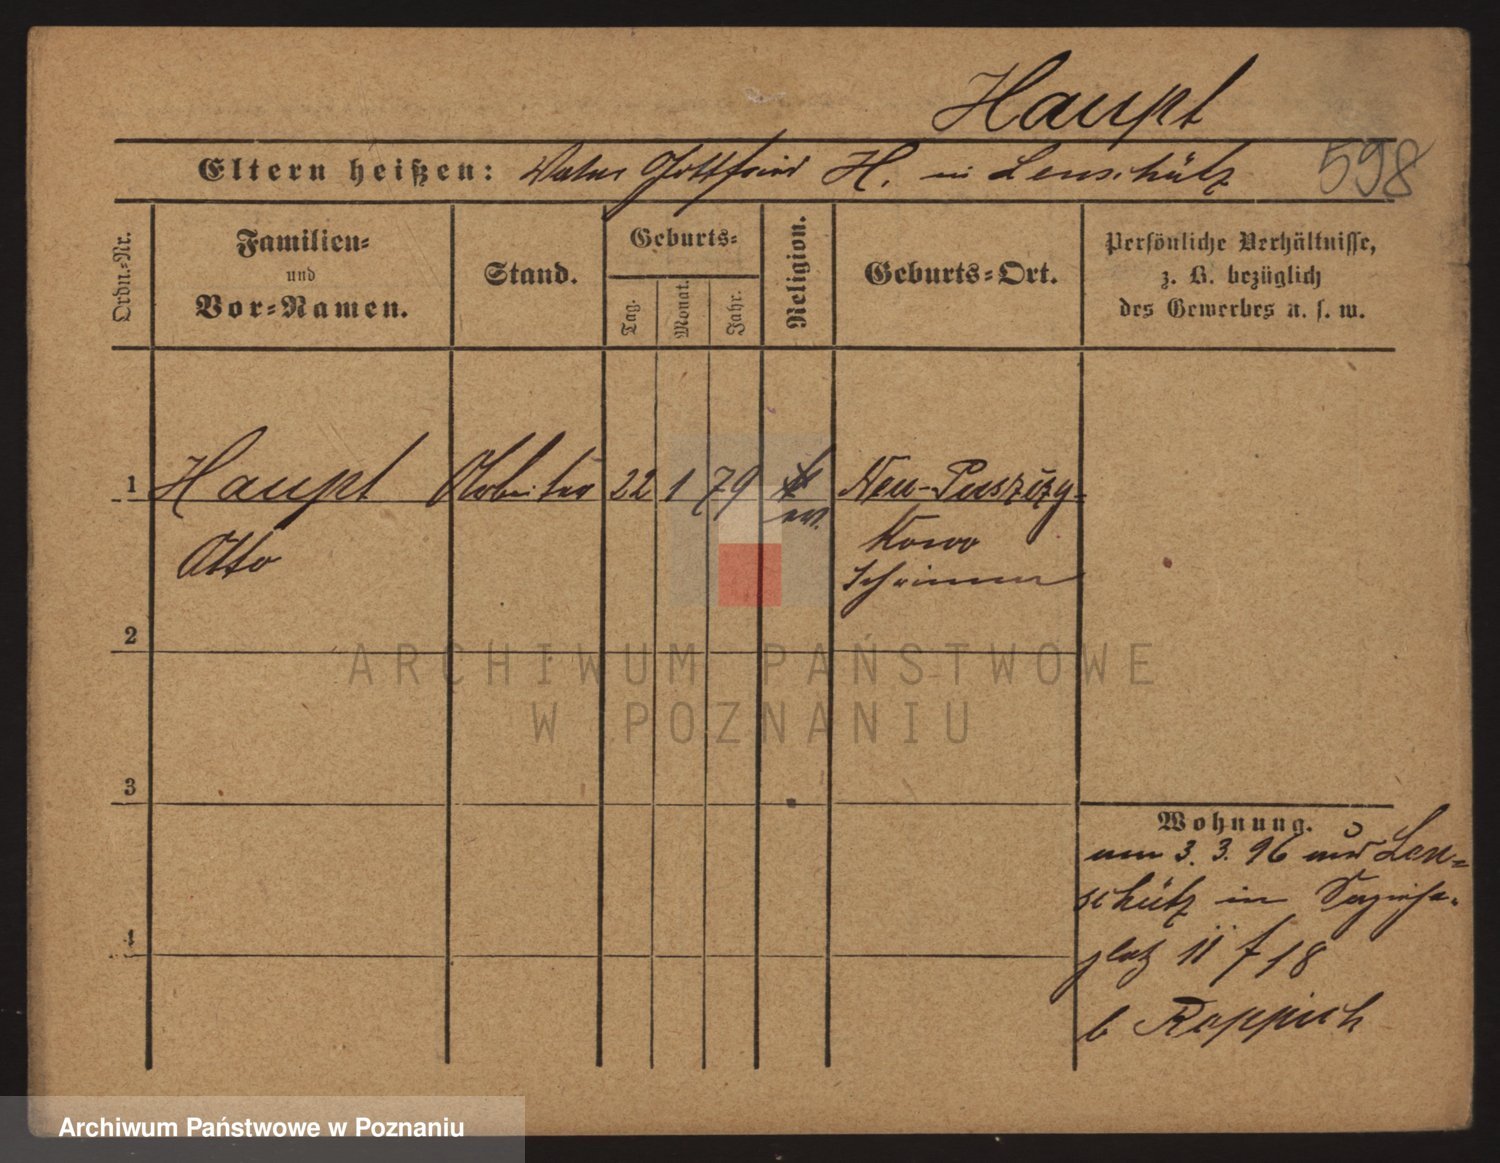 Haupt
598
Eltern heißen: Vater Gottfried H. in Lenschütz
Ordn.-Nr.
Familien-
und
Vor-Namen.
Stand.
Geburts-
Tag.
Monat.
Jahr.
Religion.
Geburts-Ort.
Persönliche Verhältnisse,
z. B. bezüglich
des Gewerbes u. s. w.
1 Haupt Arbeiter 22 1 79 Neu-
ev.
Otto
Schrimm
2
3
4
Wohnung.
am 3. 3. 96 aus Len-
schütz in
platz 11 f 18
b Reppich
ARCHIWUM PAŃSTWOWE
W POZNANIU
Archiwum Państwowe w Poznaniu